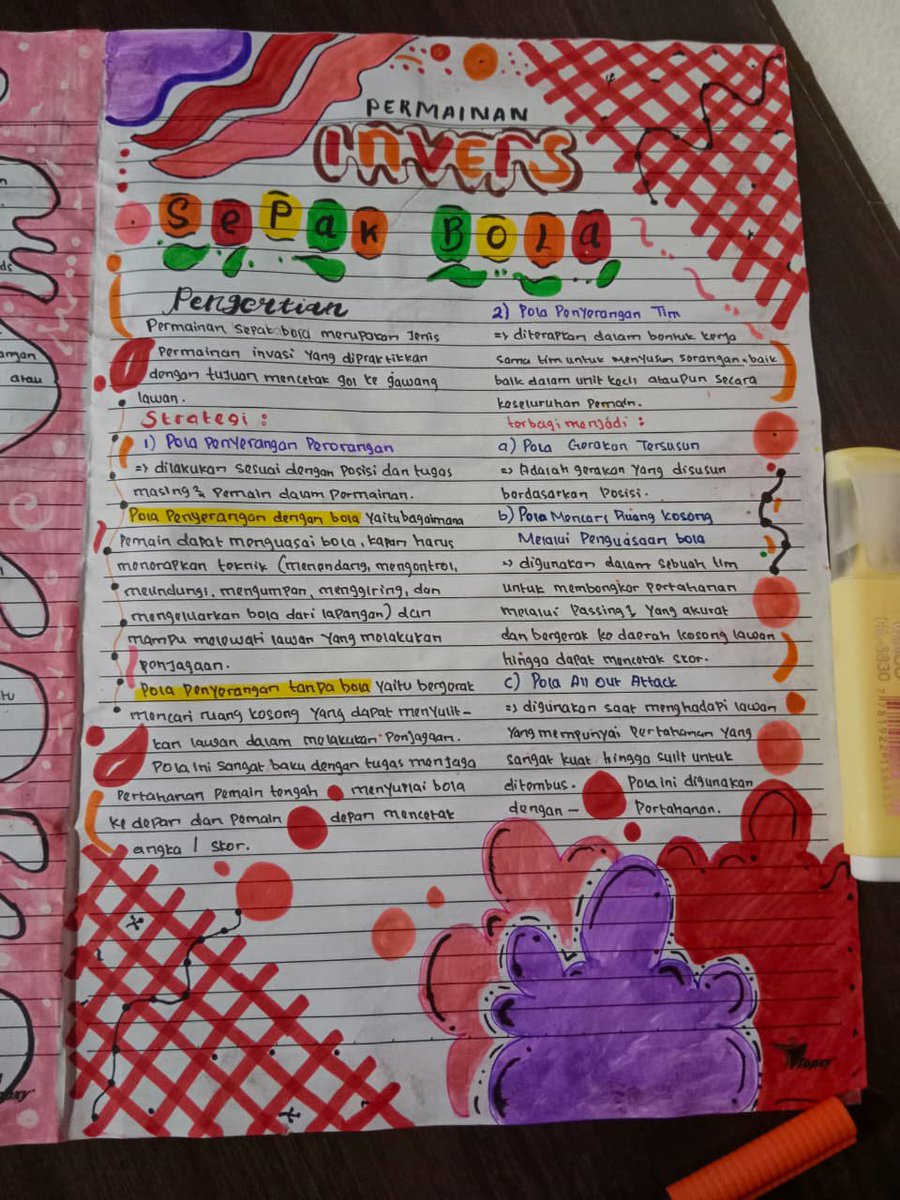 PERMAINAN
INVERS
SEPAK BOLA
Pengertian
Permainan Sepak bola merupakan Jenis
Permainan invasi yang dipraktikkan
dengan tujuan mencetak gol ke gawang
lawan.
Strategi :
1) Pola Penyerangan Perorangan
=> dilakukan sesuai dengan Posisi dan tugas
masing2 Pemain dalam Permainan.
Pola Penyerangan dengan bola yaitu bagaimana
Pemain dapat menguasai bola, kapan harus
menerapkan teknik (menendang, mengontrol,
meundungi, mengumpan, menggiring, dan
mengeluarkan bola dari lapangan) dan
mampu melewati lawan yang melakukan
penjagaan.
Pola Penyerangan tanpa bola yaitu bergerak
mencari ruang kosong yang dapat menyulit-
kan lawan dalam melakukan Penjagaan.
Pola ini sangat baku dengan tugas menjaga
Pertahanan Pemain tengah menyuplai bola
ke depan dan Pemain depan mencetak
angka / skor.
2) Pola Penyerangan Tim
=> diterapkan dalam bentuk kerja
sama tim untuk menyusun serangan, baik
baik dalam unit kecil ataupun secara
keseluruhan Pemain.
terbagi menjadi :
a) Pola Gerakan Tersusun
=> Adalah gerakan yang disusun
berdasarkan Posisi.
b) Pola Mencari Ruang Kosong
Melalui Penguasaan bola
=> digunakan dalam sebuah tim
untuk membongkar pertahanan
melalui Passing2 yang akurat
dan bergerak ke daerah kosong lawan
hingga dapat mencetak skor.
c) Pola All Out Attack
=> digunakan saat menghadapi lawan
yang mempunyai Pertahanan yang
sangat kuat hingga sulit untuk
ditembus. Pola ini digunakan
dengan - Pertahanan.